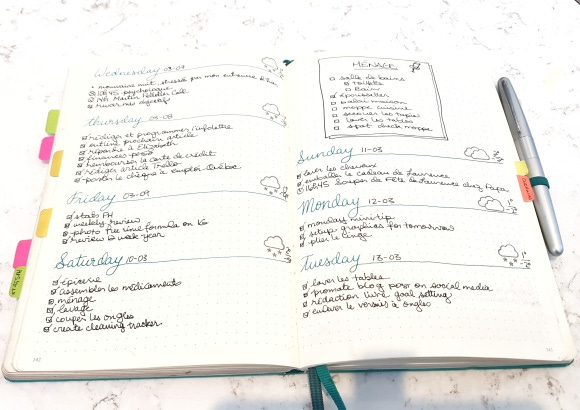 Wednesday 07-03
mauvaise nuit, stressée par mon entrevue de
10h45 psychologue
Revoir mes objectifs
Thursday 08-03
rédiger et programmer l'infolettre
écrire prochain article
répondre à Elizabeth
finances perso
rembourser la carte de crédit
rédiger article Trello
poster le chèque à emploi-Québec
Friday 09-03
stats FH
weekly review
photo Free time formula on IG
review 12 week year
Saturday 10-03
épicerie
assembler les médicaments
ménage
lavage
couper les ongles
create cleaning tracker
142
MÉNAGE
salle de bains
toilette
bain
épousseter
balai maison
moppe cuisine
secouer les tapis
laver les tables
spot check moppe
Sunday 11-03
laver les cheveux
emballer le cadeau de Laurence
16h45 souper de fête de Laurence chez Papa
Monday 12-03
monday mini tip
setup graphics for tomorrow
plier le linge
Tuesday 13-03
laver les tables
promote blog post on social media
rédaction livre goal setting
enlever le vernis à ongles
143